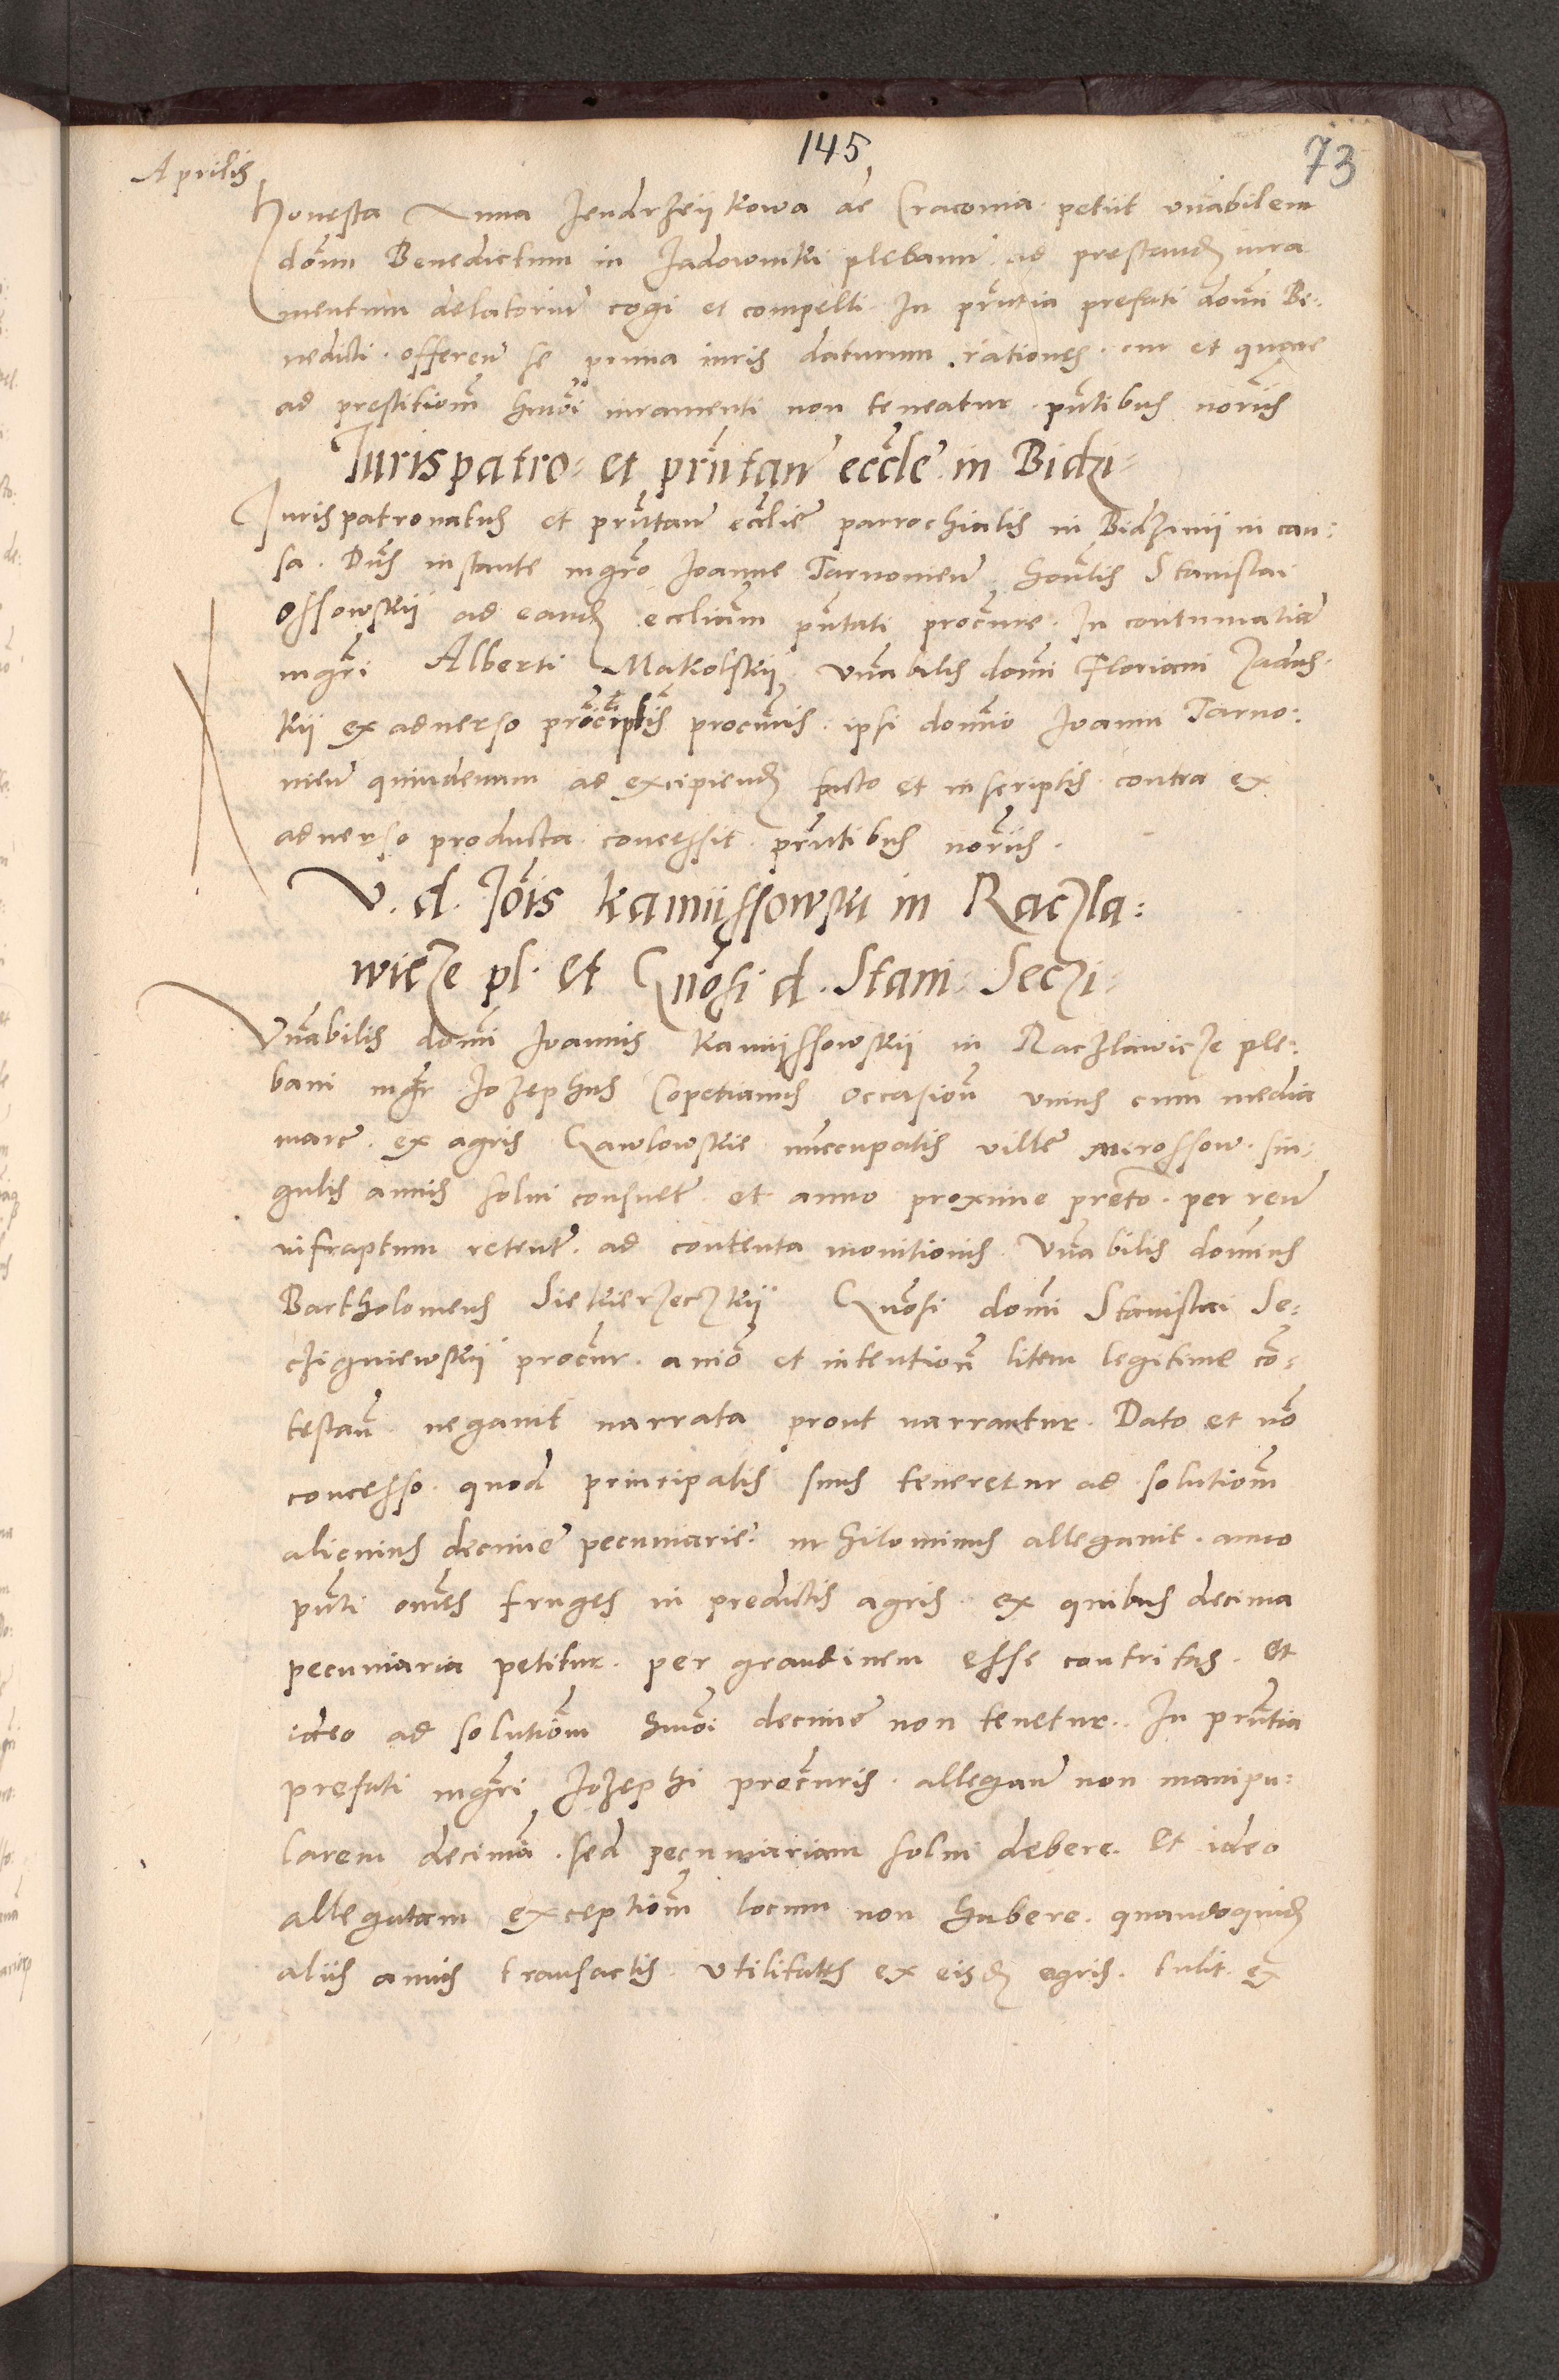 145
73
Aprilis
Honesta Anna Jendrzeiikowa de Cracouia petiit vnabilem
domn Benedictum in Jadowniki plebanu ad prestand iura
mentum delatoriu cogi et compelli In pntia prefati domi Be:
nedicti offeren se prima iuris daturum rationes cur et quare
ad prestitiom hmoi iuramenti non teneatur pntibus noriis
Jurispatro: et prntan eccle in Bidzi:
Jurispatronatus et prntan ecclie parrochialis in Bidzinii in cau:
sa Dns instante mgro Joanne Tarnonien honlis Stanislai
Ossowskii ad eand eccliam pntati procure In contumatia
mgri Alberti Makolskii vnabilis domi Floriani
kii ex aduerso procuris ipsi domino Joanni Tarno:
nien quindenam ad excipiend facto et in scriptis contra ex
aduerso producta concessit prntibus noriis
V. d. Jois Kamiissowski in Raczla:
wicze pl. et Gnosi d. Stani: Seczi:
Vnabilis domi Joannis Kamiissowskii in Raczlawicze ple:
bani mgr Jozephus Copetianus occasion vnius cum media
marc ex agris Gawlowskie nuccupatis ville Mirossow sin:
gulis annis solui consuet et anno proxime preto per reu
infraptum retent ad contenta monitionis Vnabilis dominus
Bartholomeus Siekierzeczkii Gnosi domi Stanislai Se:
czigniewskii procur anio et intention litem legitime co:
testan negauit narrata prout narrantur. Dato et no
concesso quod principalis suus teneretur ad solutiom
alicuius decime pecuniarie nihilominus allegauit anno
pnti omes fruges in predictis agris ex quibus decima
pecuniaria petitur per grandinem esse contritas et
ideo ad solutiom hmoi decime non tenetur. In prntia
prefati mgri Jozephi procuris allegan non manipu:
larem decima sed pecuniariam solui debere. Et ideo
allegatam exceptiom locum non habere quandoquid
aliis annis transactis vtilitates ex eisd agris tulit ex